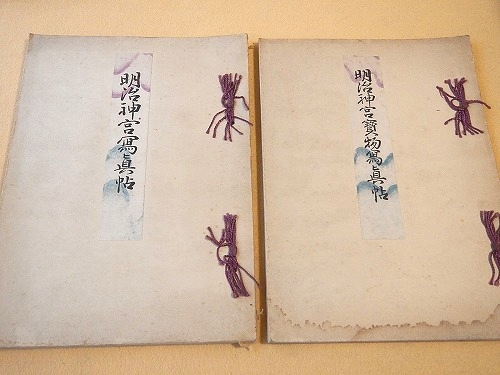 明治神宮寫眞帖
明治神宮寳物寫眞帖